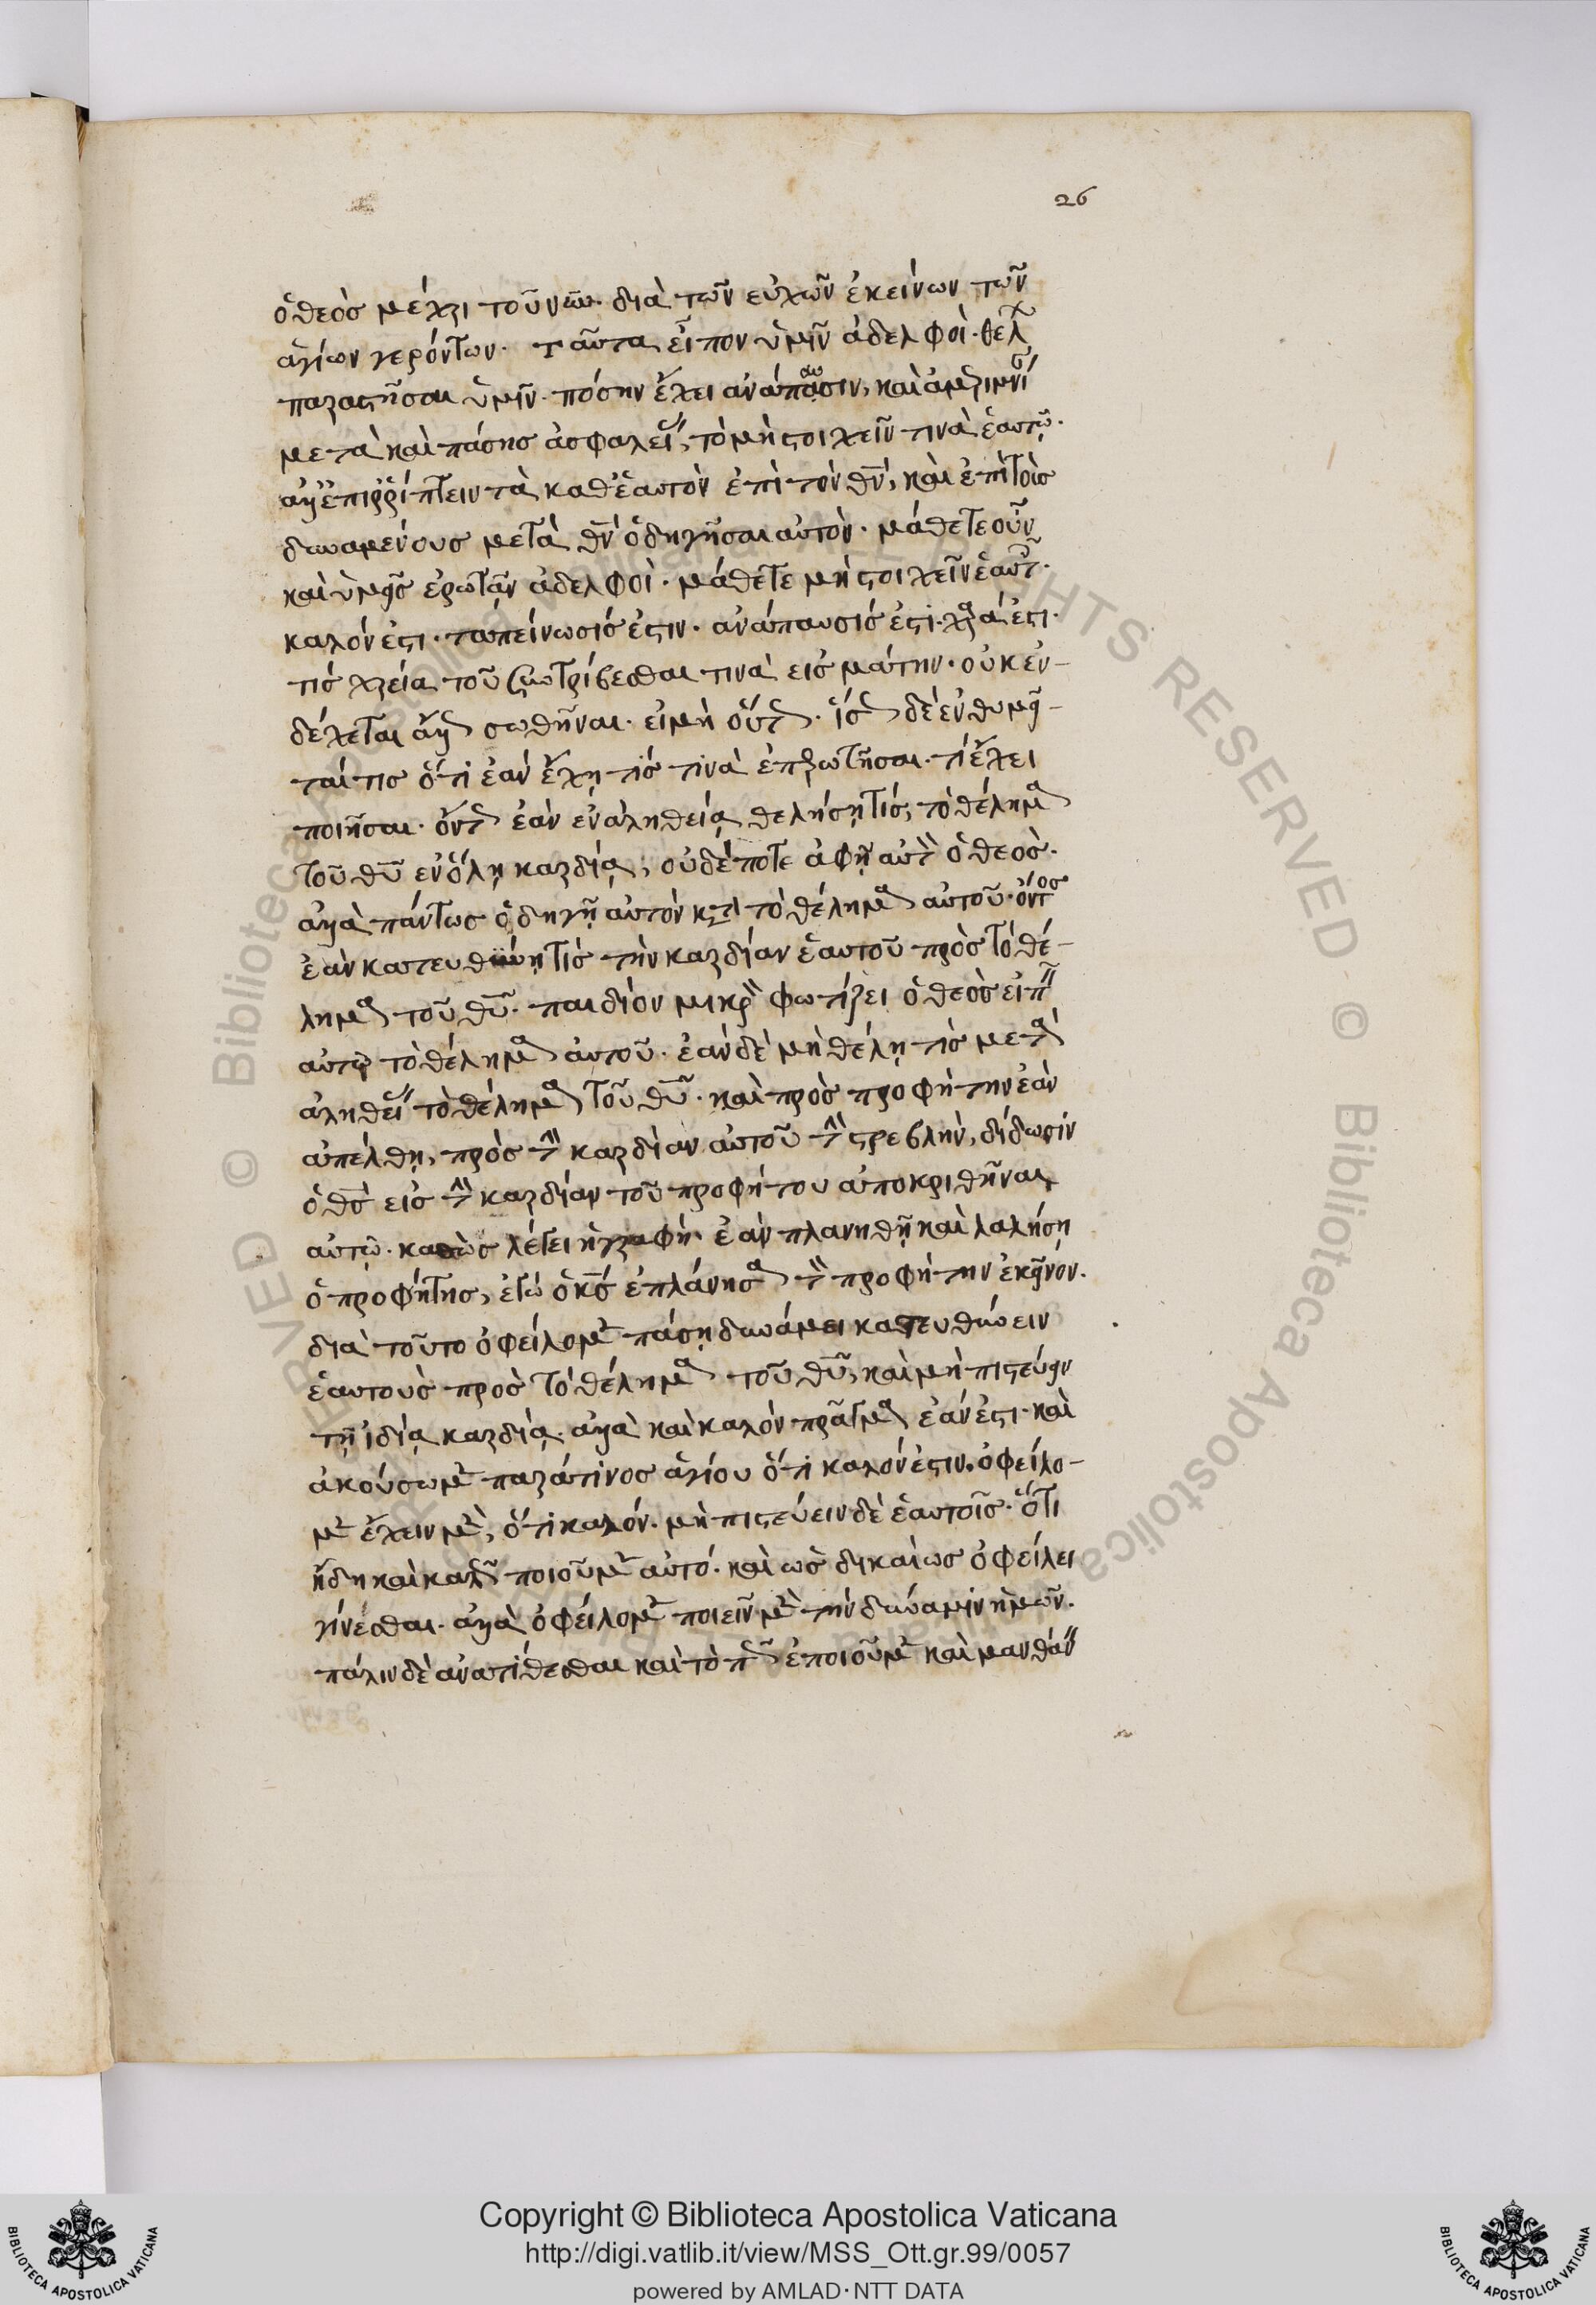 26
ὁ θεὸς μέχρι τοῦ νῦν. διὰ τῶν εὐχῶν ἐκείνων τῶν
ἁγίων γερόντων. ταῦτα εἶπον ὑμῖν ἀδελφοί. θέλων
παραστῆσαι ὑμῖν. πόσην ἔχει ἀνάπαυσιν, καὶ ἀμεριμνίαν
μετὰ καὶ πάσης ἀσφαλείας, τὸ μὴ στοιχεῖν τινὰ ἑαυτῷ.
ἀλλ' ἐπιρρίπτειν τὰ καθ' ἑαυτὸν ἐπὶ τὸν θν, καὶ ἐπὶ τοὺς
δυναμένους μετὰ θν ὁδηγῆσαι αὐτόν. μάθετε οὖν
καὶ ὑμεῖς ἐρωτᾶν ἀδελφοί. μάθετε μὴ στοιχεῖν ἑαυτοῖς.
καλόν ἐστι. ταπείνωσίς ἐστιν. ἀνάπαυσίς ἐστι. χαρά ἐστι.
τίς χρεία τοῦ συντρίβεσθαι τινὰ εἰς μάτην. οὐκ ἐν-
δέχεται ἄλλως σωθῆναι. εἰ μὴ οὕτως. ἴσως δὲ ἐνθυμεῖ-
ταί τις ὅτι ἐὰν ἔχῃ τίς τινὰ ἐπερωτῆσαι. τί ἔχει
ποιῆσαι. ὄντως ἐὰν ἐν ἀληθείᾳ θελήσῃ τίς, τὸ θέλημα
τοῦ θυ ἐν ὅλῃ καρδίᾳ, οὐδέποτε ἀφῇ αὐτὸν ὁ θεός.
ἀλλὰ πάντως ὁδηγῇ αὐτὸν κατὰ τὸ θέλημα αὐτοῦ. ὄντως
ἐὰν κατευθύνῃ τίς τὴν καρδίαν ἑαυτοῦ πρὸς τὸ θέ-
λημα τοῦ θυ. παιδίον μικρὸν φωτίζει ὁ θεὸς εἰπεῖν
αὐτῷ τὸ θέλημα αὐτοῦ. ἐὰν δὲ μὴ θέλῃ τίς μετὰ
ἀληθείας τὸ θέλημα τοῦ θυ. καὶ πρὸς προφήτην ἐὰν
ἀπέλθῃ, πρὸς τὴν καρδίαν αὐτοῦ τὴν στρεβλήν, δίδωσιν
ὁ θς εἰς τὴν καρδίαν τοῦ προφήτου ἀποκριθῆναι
αὐτῷ. καθὼς λέγει ἡ γραφή. ἐὰν πλανηθῇ καὶ λαλήσῃ
ὁ προφήτης, ἐγὼ ὁ κς ἐπλάνησα τὸν προφήτην ἐκεῖνον.
διὰ τοῦτο ὀφείλομεν πάσῃ δυνάμει κατευθύνειν
ἑαυτοὺς πρὸς τὸ θέλημα τοῦ θυ, καὶ μὴ πιστεύειν
τῇ ἰδίᾳ καρδίᾳ. ἀλλὰ καὶ καλὸν πρᾶγμα ἐάν ἐστι. καὶ
ἀκούσωμεν παρά τινος ἁγίου ὅτι καλόν ἐστιν. ὀφείλο-
μεν ἔχειν μὲν, ὅτι καλόν. μὴ πιστεύειν δὲ ἑαυτοῖς. ὅτι
ἤδη καὶ καλῶς ποιοῦμεν αὐτό. καὶ ὡς δικαίως ὀφείλει
γίνεσθαι. ἀλλὰ ὀφείλομεν ποιεῖν μὲν τὴν δύναμιν ἡμῶν.
πάλιν δὲ ἀνατίθεσθαι καὶ τὸ πῶς ἐποιοῦμεν καὶ μανθάνειν
Copyright © Biblioteca Apostolica Vaticana
http://digi.vatlib.it/view/MSS_Ott.gr.99/0057
powered by AMLAD·NTT DATA